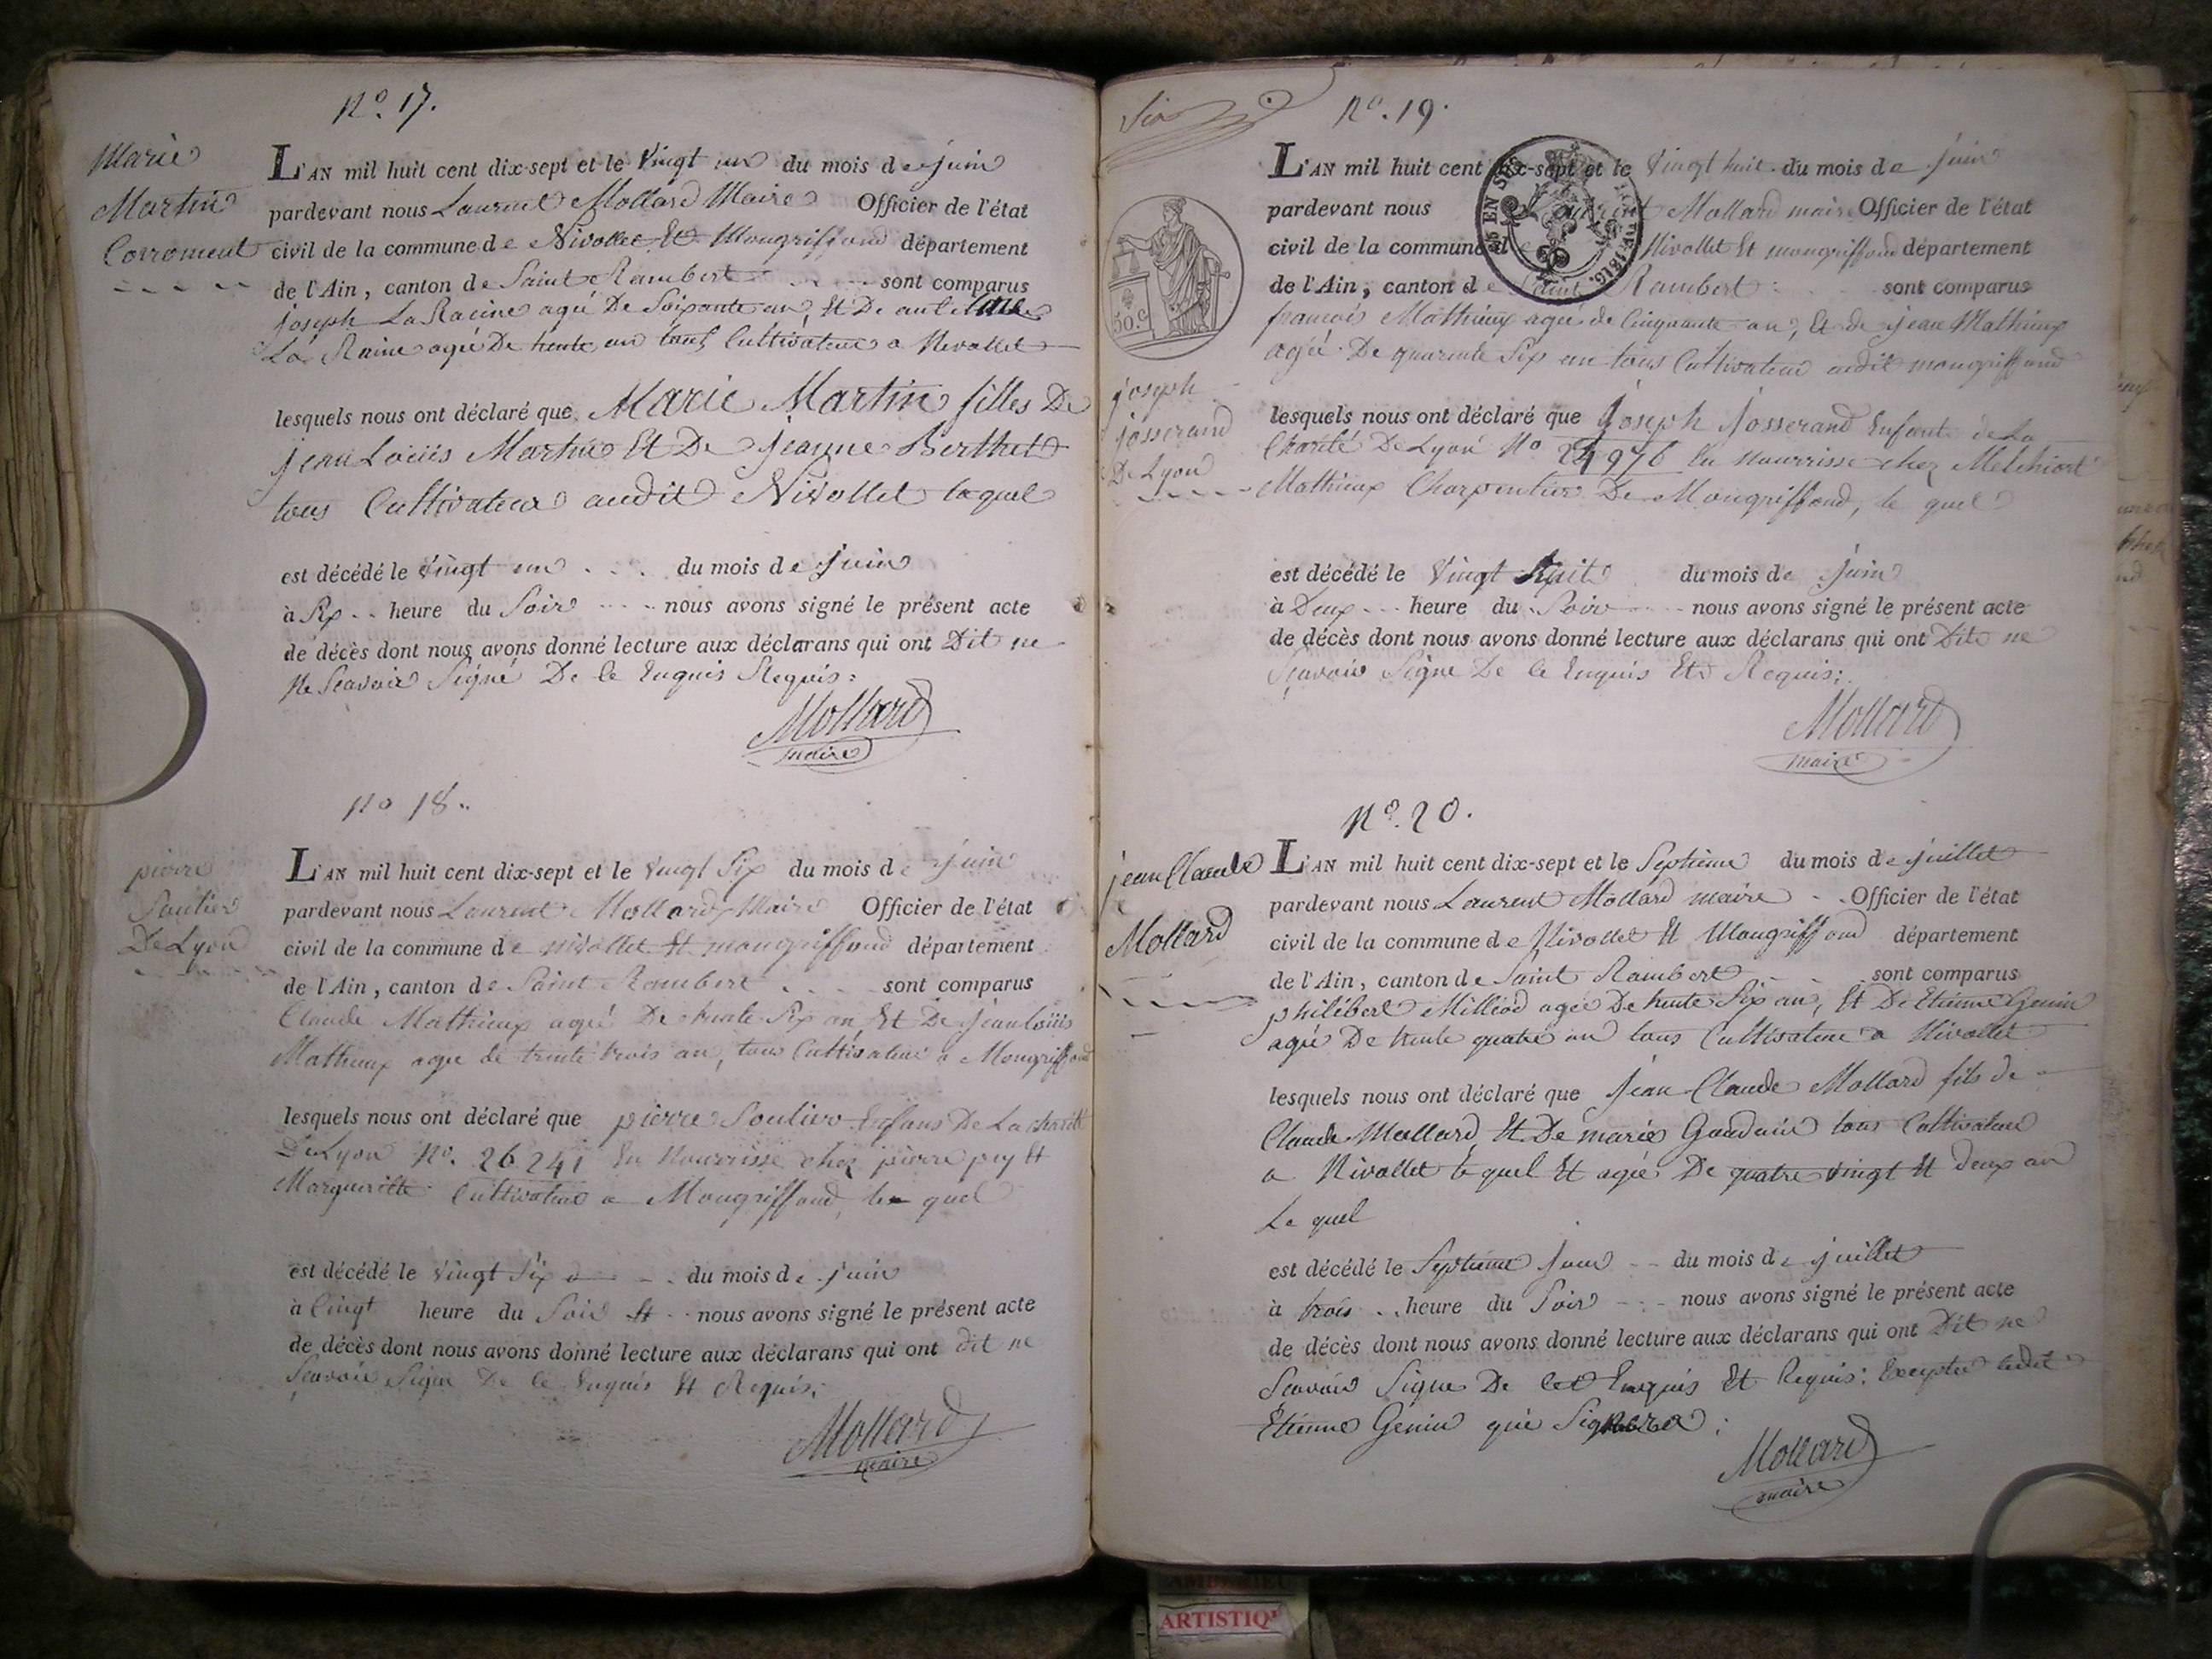 N.o 17.
Marie
Martin
Corroment
L'AN mil huit cent dix-sept et le vingt un du mois de juin
pardevant nous Laurent Mollard Maire Officier de l'état
civil de la commune de Nivollet Et Mongriffond département
de l'Ain, canton de Saint Rambert sont comparus
joseph La Racine agé De Soixante an, Et De
La Raine agé De trente an tous Cultivateur a Nivollet
lesquels nous ont déclaré que Marie Martin filles De
jean Loüis Martin Et De jeanne Berthet
tous Cultivateur audit Nivollet laquel
est décédé le vingt un du mois de juin
à Six heure du Soir nous avons signé le présent acte
de décès dont nous avons donné lecture aux déclarans qui ont Dit ne
Ne Scavoir Signé De ce Enquis Requis:
Mollard
maire
No 18.
pierre
Soulier
De Lyon
L'AN mil huit cent dix-sept et le vingt Six du mois de juin
pardevant nous Laurent Mollard Maire Officier de l'état
civil de la commune de nivollet Et mongriffond département
de l'Ain, canton de Saint Rambert sont comparus
Claude Mathieux agé De trente Six an, Et De jean loüis
Mathieux agé de trente trois an, tous Cultivateur a Mongriffond
lesquels nous ont déclaré que pierre Soulier Enfans De La charité
De Lyon No. 26241 En Nourrisse chez pierre puy Et
Margueritte Cultivateur a Mongriffond, le quel
est décédé le vingt Six du mois de juin
à Cinqt heure du Soir Et nous avons signé le présent acte
de décès dont nous avons donné lecture aux déclarans qui ont dit ne
Scavoir Signé De ce Enquis Et Requis:
Mollard
maire
Six
N.o 19.
50.c
joseph
josserand
De Lyon
L'AN mil huit cent dix-sept et le vingt huit du mois de juin
pardevant nous Laurent Mollard maire Officier de l'état
civil de la commune de Nivollet Et mongriffond département
de l'Ain, canton de Saint Rambert sont comparus
francois Mathieux agé de Cinquante an, Et de jean Mathieux
agé De quarente Six an tous Cultivateur audit mongriffond
lesquels nous ont déclaré que joseph josserand Enfant de La
Charité De Lyon No 24976 En Nourrisse chez Melchiort
Mathieux Charpentier De Mongriffond, le quel
est décédé le Vingt huit du mois de juin
à Deux heure du Soir nous avons signé le présent acte
de décès dont nous avons donné lecture aux déclarans qui ont Dit ne
Sçavoir Signe De ce Enquis Et Requis:
Mollard
maire
N.o 20.
jean Claude
Mollard
L'AN mil huit cent dix-sept et le Septieme du mois de juillet
pardevant nous Laurent Mollard maire Officier de l'état
civil de la commune de Nivollet Et Mongriffond département
de l'Ain, canton de Saint Rambert sont comparus
philébert Milliod agé De trente Six an, Et De Etienne Genin
agé De trente quatre an tous Cultivateur a Nivollet
lesquels nous ont déclaré que jean Claude Mollard fils de
Claude Mollard Et De marie Goudnin tous Cultivateur
a Nivollet le quel Et agée De quatre vingt Et deux an
Le quel
est décédé le Septieme jour du mois de juillet
à trois heure du Soir nous avons signé le présent acte
de décès dont nous avons donné lecture aux déclarans qui ont Dit ne
Scavoir Signe De Enquis Et Requis: Exceptée ledit
Etienne Genin qui Signera:
Mollard
maire
ARTISTIQ